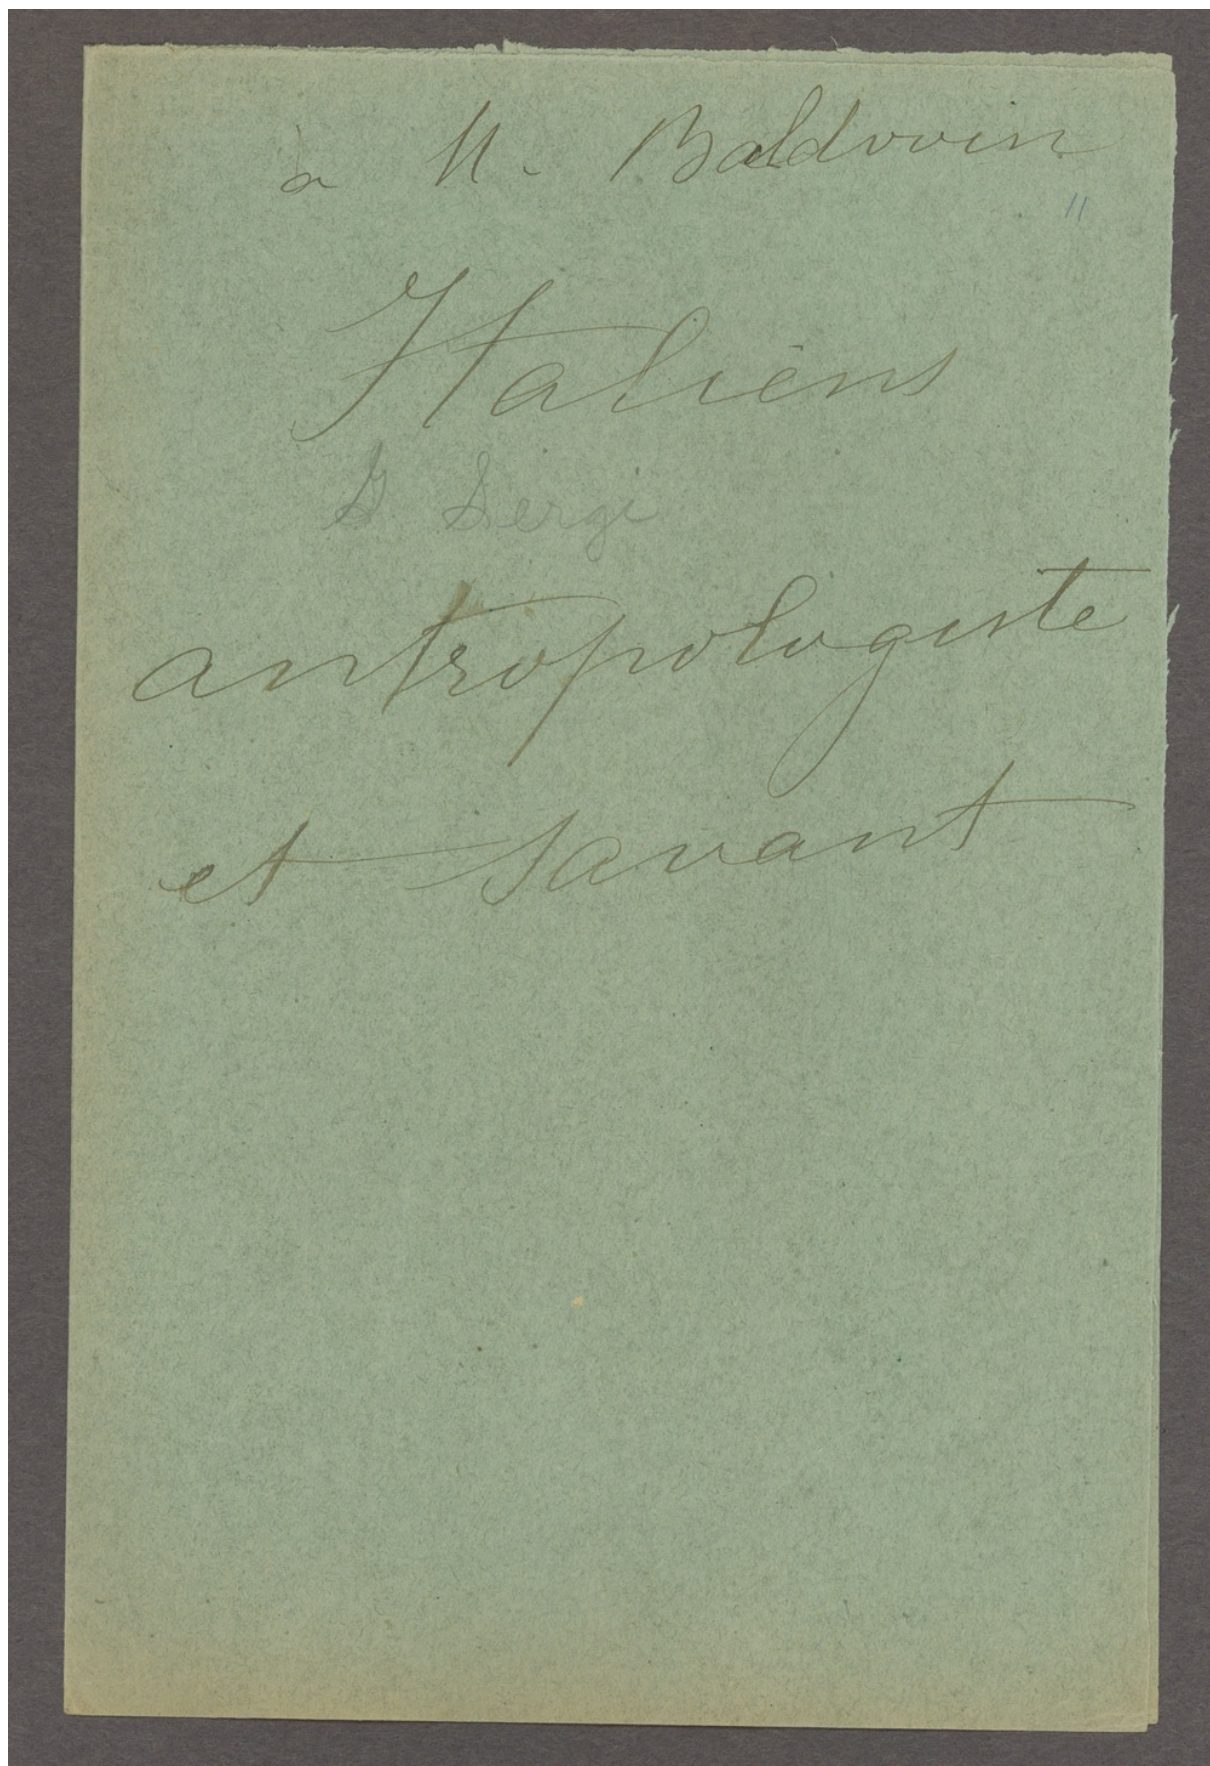 à M. Baldwin
11
Italiens
G. Sergi
antropologiste
et savant